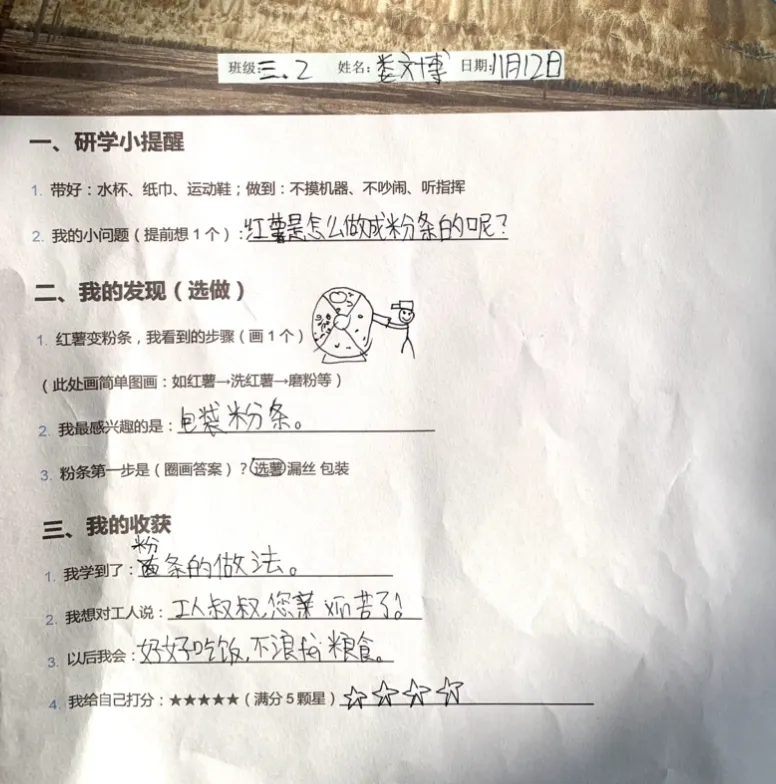 班级:三.2 姓名:娄文博 日期:11月12日
一、研学小提醒
1. 带好:水杯、纸巾、运动鞋;做到:不摸机器、不吵闹、听指挥
2. 我的小问题(提前想1个):红薯是怎么做成粉条的呢?
二、我的发现(选做)
1. 红薯变粉条,我看到的步骤(画1个)
(此处画简单图画:如红薯→洗红薯→磨粉等)
2. 我最感兴趣的是:包装粉条。
3. 粉条第一步是(圈画答案)?选薯 漏丝 包装
三、我的收获
粉
1. 我学到了:条的做法。
2. 我想对工人说:工人叔叔,您 苦了!
3. 以后我会:好好吃饭,不浪费粮食。
4. 我给自己打分:★★★★★(满分5颗星)☆☆☆☆